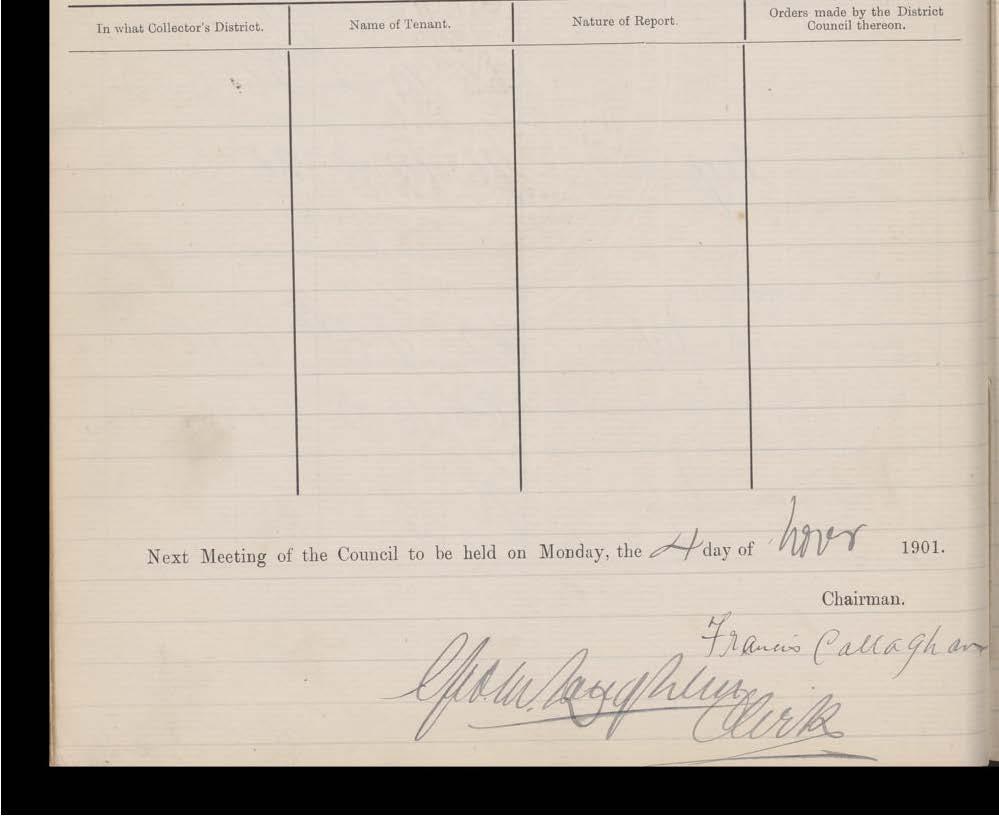 In what Collector's District. Name of Tenant. Nature of Report. Orders made by the District Council thereon.
Next Meeting of the Council to be held on Monday, the 4 day of Novr 1901.
Chairman.
Francis Callaghan
Clerk